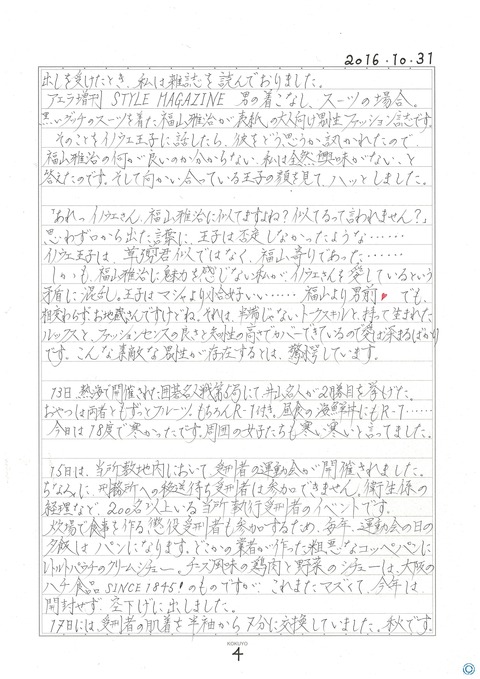 2016.10.31
出しを受けたとき、私は雑誌を読んでおりました。
アエラ増刊 STYLE MAGAZINE 男の着こなし、スーツの場合。
黒いグッチのスーツを着た、福山雅治が表紙の大人向け男性ファッション誌です。
そのことをイノウエ王子に話したら、彼をどう思うか訊かれたので、
福山雅治の何が良いのか分からない、私は全然興味がない、と
答えたのです。そして向かい合っている王子の顔を見て、ハッとしました。
「あれっイノウエさん、福山雅治に似てますよね？似てるって言われません？」
思わず口から出た言葉に、王子は否定しなかったような……
イノウエ王子は、草彅君似ではなく、福山寄りであった……
しかも、福山雅治に魅力を感じない私が、イノウエさんを愛しているという
矛盾に混乱。王子はマシャより格好いい…… 福山より男前♥ でも、
相変わらずお地蔵さんですけどね。それは、半端じないトークスキルと、持って生まれた
ルックスと、ファッションセンスの良さと知性の高さでカバーできているので愛は深まるばかり
です。こんな素敵な男性が存在するとは、驚愕しています。
13日、熱海で開催された囲碁名人戦第6局にて、井山名人が2勝目を挙げた。
おやつは両者ともずっとフルーツ。もちろんR-1付き。昼食の海鮮丼にもR-1……
今日は18度で寒かったです。周囲の女子たちも寒い寒いと言ってました。
15日は、当所敷地内において受刑者の運動会が開催されました。
ちなみに、刑務所への移送待ち受刑者は参加できません。衛生係の
経理など、200名以上いる当所執行受刑者のイベントです。
炊場で食事を作る懲役受刑者も参加するため、毎年、運動会の日の
夕飯はパンになります。どこかの業者が作った粗悪なコッペパンに
レトルトパウチのクリームシチュー。チーズ風味の鶏肉と野菜のシチューは、大阪の
ハチ食品 SINCE 1845!のものですが、これまたマズくて、今年は
開封せず、空下げに出しました。
17日には受刑者の肌着を半袖から7分に交換していました。秋です。
KOKUYO
4